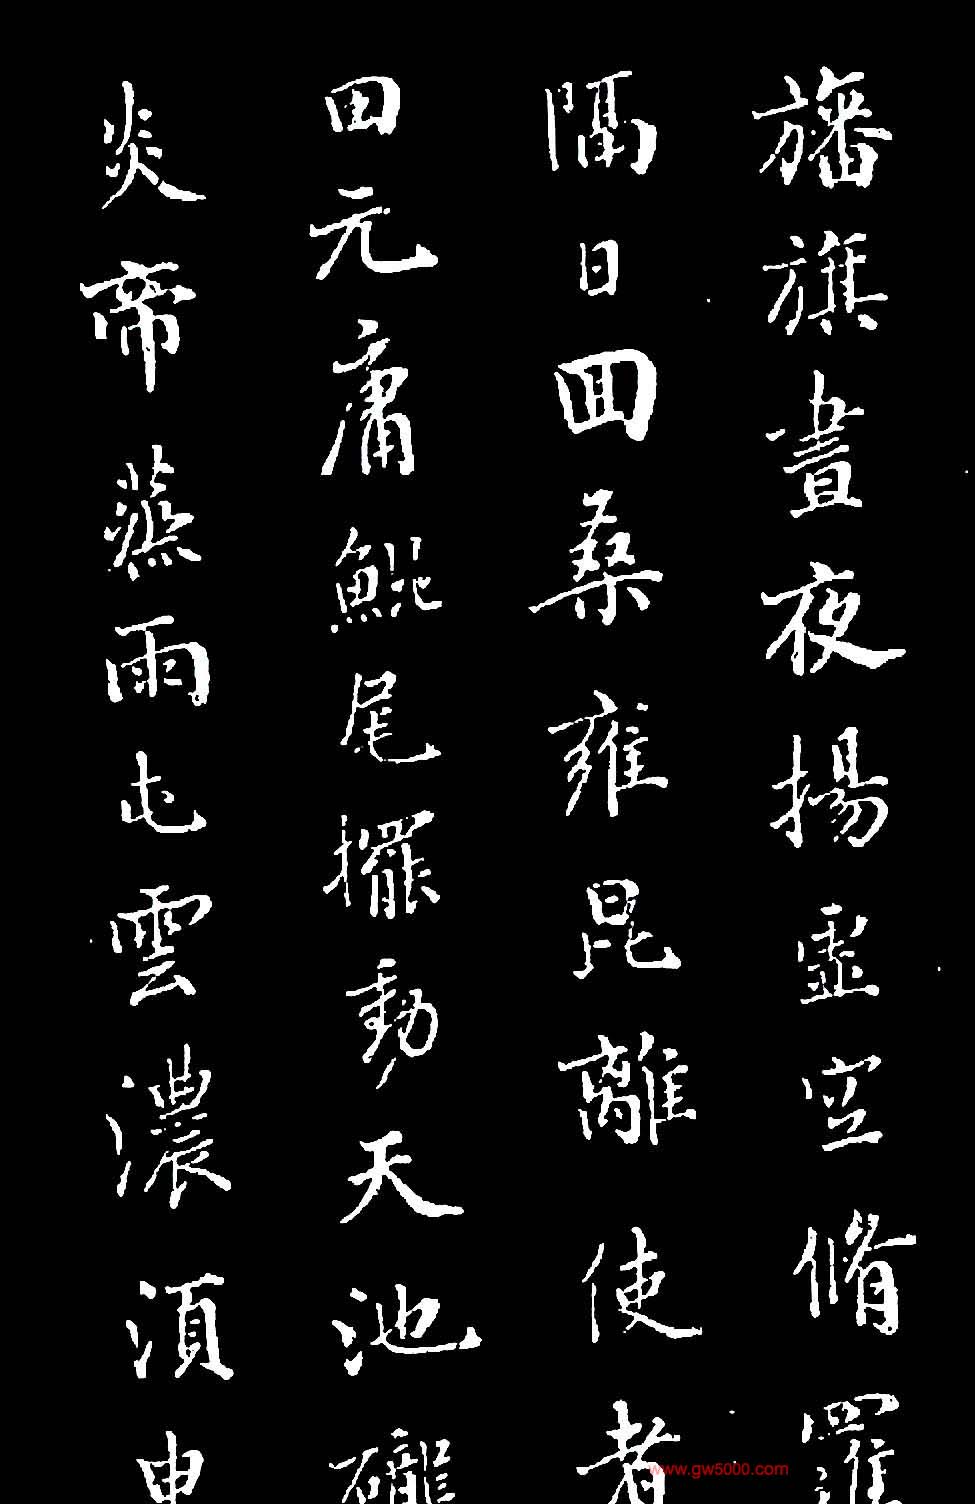 旛旗晝夜揚虛空脩羅
隔日回桑雍昆離使者
田元庸鯤尾擺動天池
炎帝蒸雨屯雲濃須申
www.gw5000.com